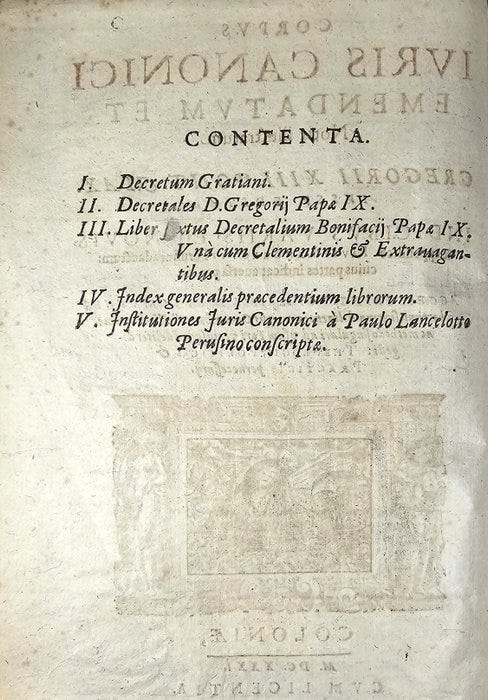 CONTENTA.
I. Decretum Gratiani.
II. Decretales D. Gregorij Papæ IX.
III. Liber Sextus Decretalium Bonifacij Papæ IX.
Vnà cum Clementinis & Extrauagan-
tibus.
IV. Index generalis præcedentium librorum.
V. Institutiones Juris Canonici à Paulo Lancelotto
Perusino conscriptæ.